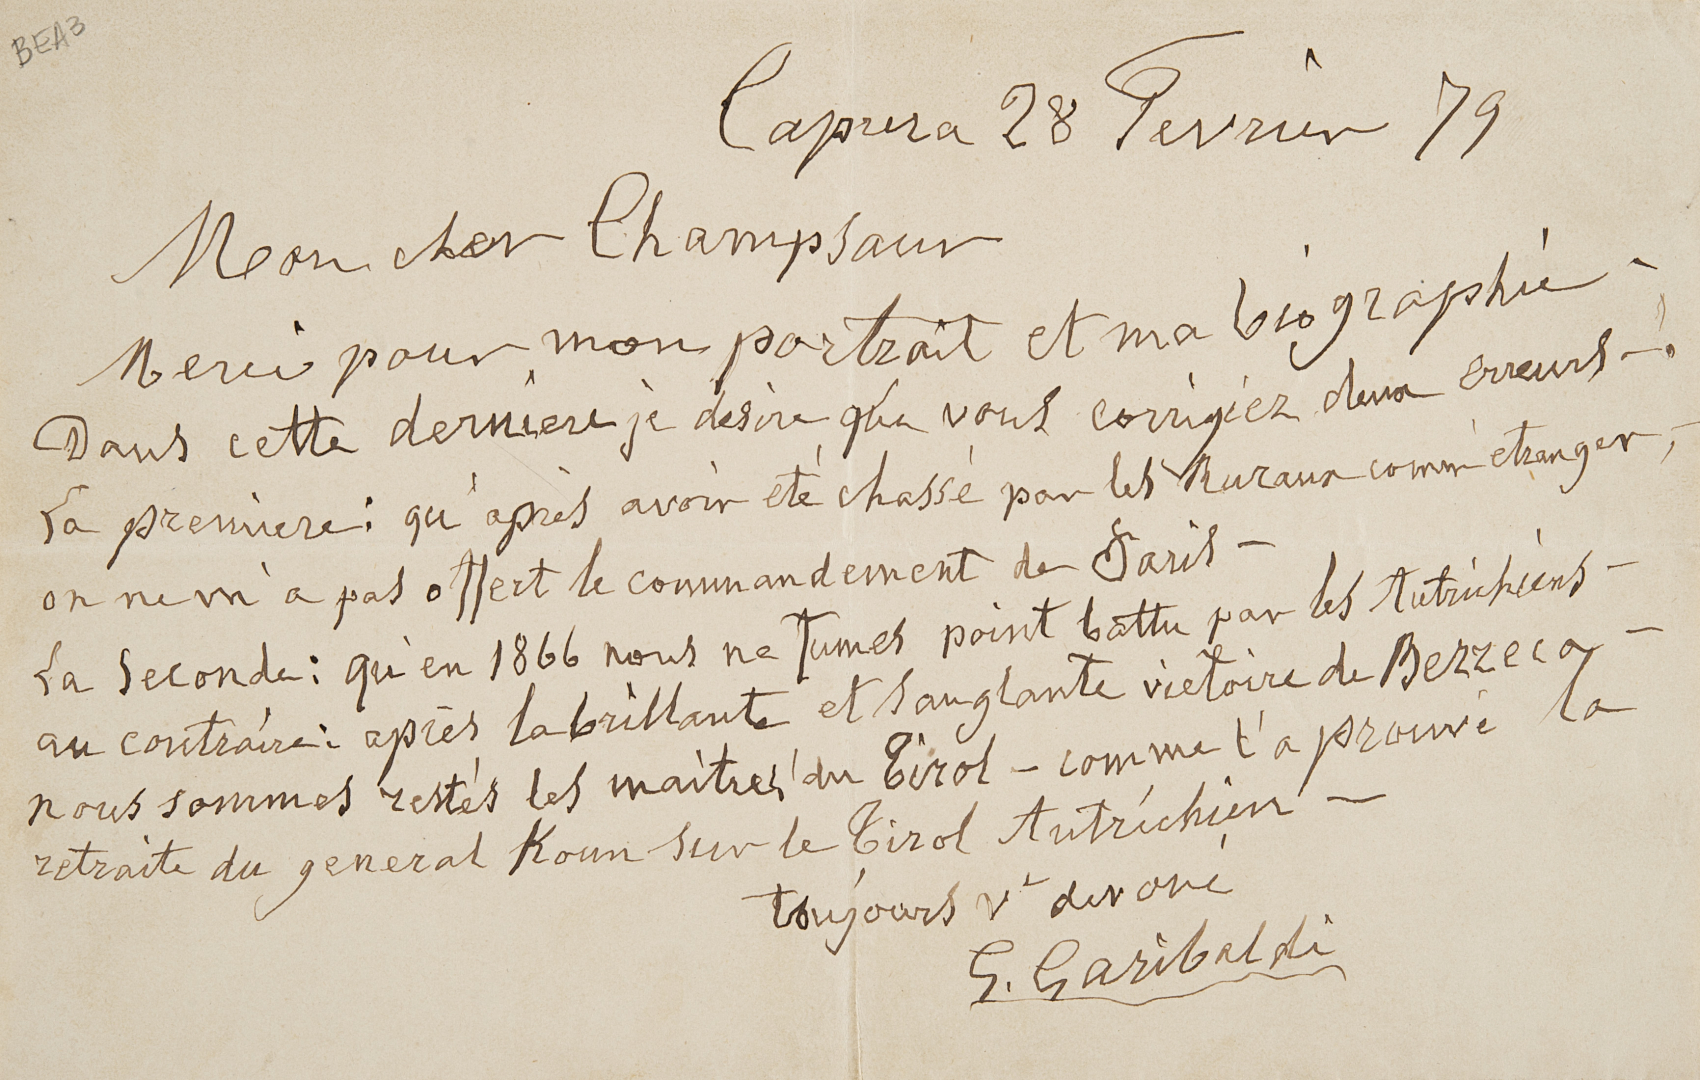 BEA3
Caprera 28 Fevrier 79
Mon cher Champsaur
Merci pour mon portrait et ma biographie -
Dans cette derniere je désire que vous corrigiez deux erreurs - .
La premiere : qu'après avoir été chassé par les Ruraux comm' etranger, -
on ne m'a pas offert le commandement de Paris -
La Seconde : qu'en 1866 nous ne fumes point battu par les Autrichiens -
au contraire : après la brillante et sanglante victoire de Bezzeca -
nous sommes restés les maitres du Tirol - comme l'a prouvé la
retraite du general Koun sur le Tirol Autrichien -
toujours vt devoué
G. Garibaldi